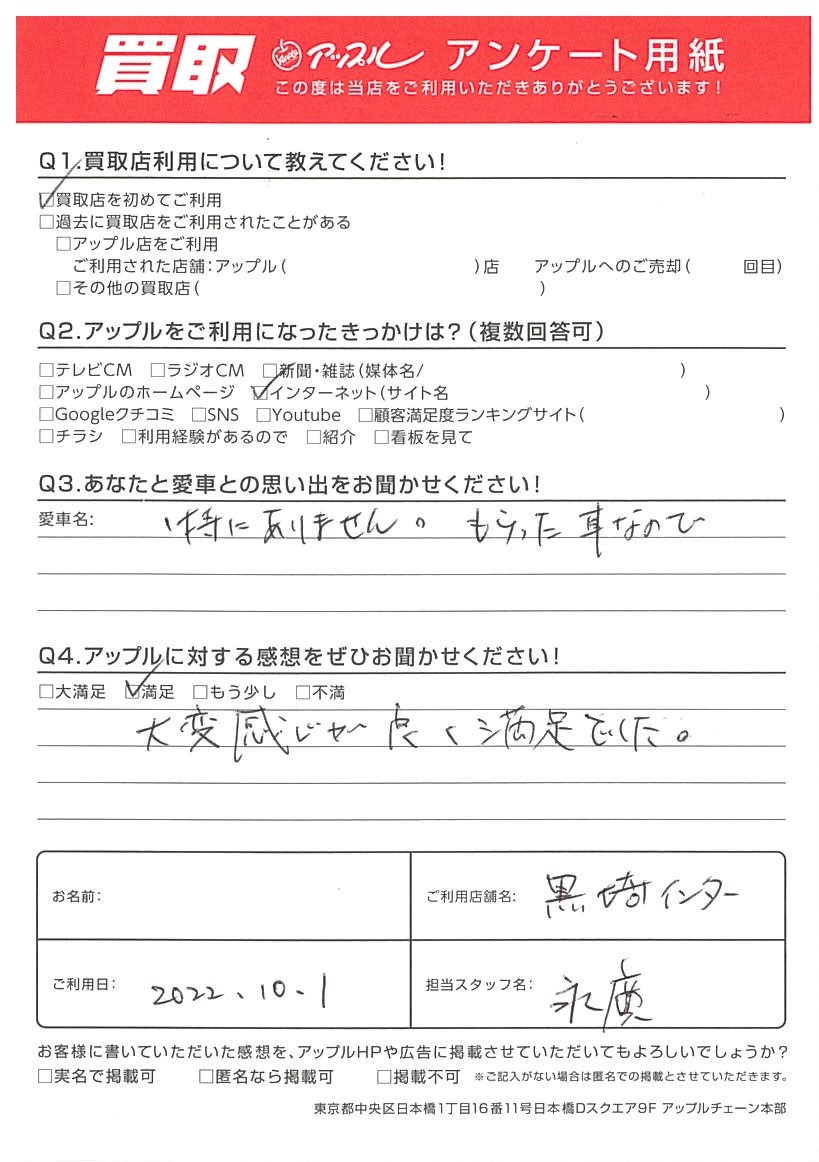 買取 Apple アップル アンケート用紙
この度は当店をご利用いただきありがとうございます!
Q1.買取店利用について教えてください!
☑買取店を初めてご利用
□過去に買取店をご利用されたことがある
□アップル店をご利用
ご利用された店舗:アップル( )店 アップルへのご売却( 回目)
□その他の買取店( )
Q2.アップルをご利用になったきっかけは?(複数回答可)
□テレビCM □ラジオCM □新聞・雑誌(媒体名/ )
□アップルのホームページ ☑インターネット(サイト名 )
□Googleクチコミ □SNS □Youtube □顧客満足度ランキングサイト( )
□チラシ □利用経験があるので □紹介 □看板を見て
Q3.あなたと愛車との思い出をお聞かせください!
愛車名: 特にありません。もらった車なので
Q4.アップルに対する感想をぜひお聞かせください!
□大満足 ☑満足 □もう少し □不満
大変感じが良く満足でした。
お名前: ご利用店舗名: 黒埼インター
ご利用日: 2022.10.1 担当スタッフ名: 永廣
お客様に書いていただいた感想を、アップルHPや広告に掲載させていただいてもよろしいでしょうか?
□実名で掲載可 □匿名なら掲載可 □掲載不可 ※ご記入がない場合は匿名での掲載とさせていただきます。
東京都中央区日本橋1丁目16番11号日本橋Dスクエア9F アップルチェーン本部